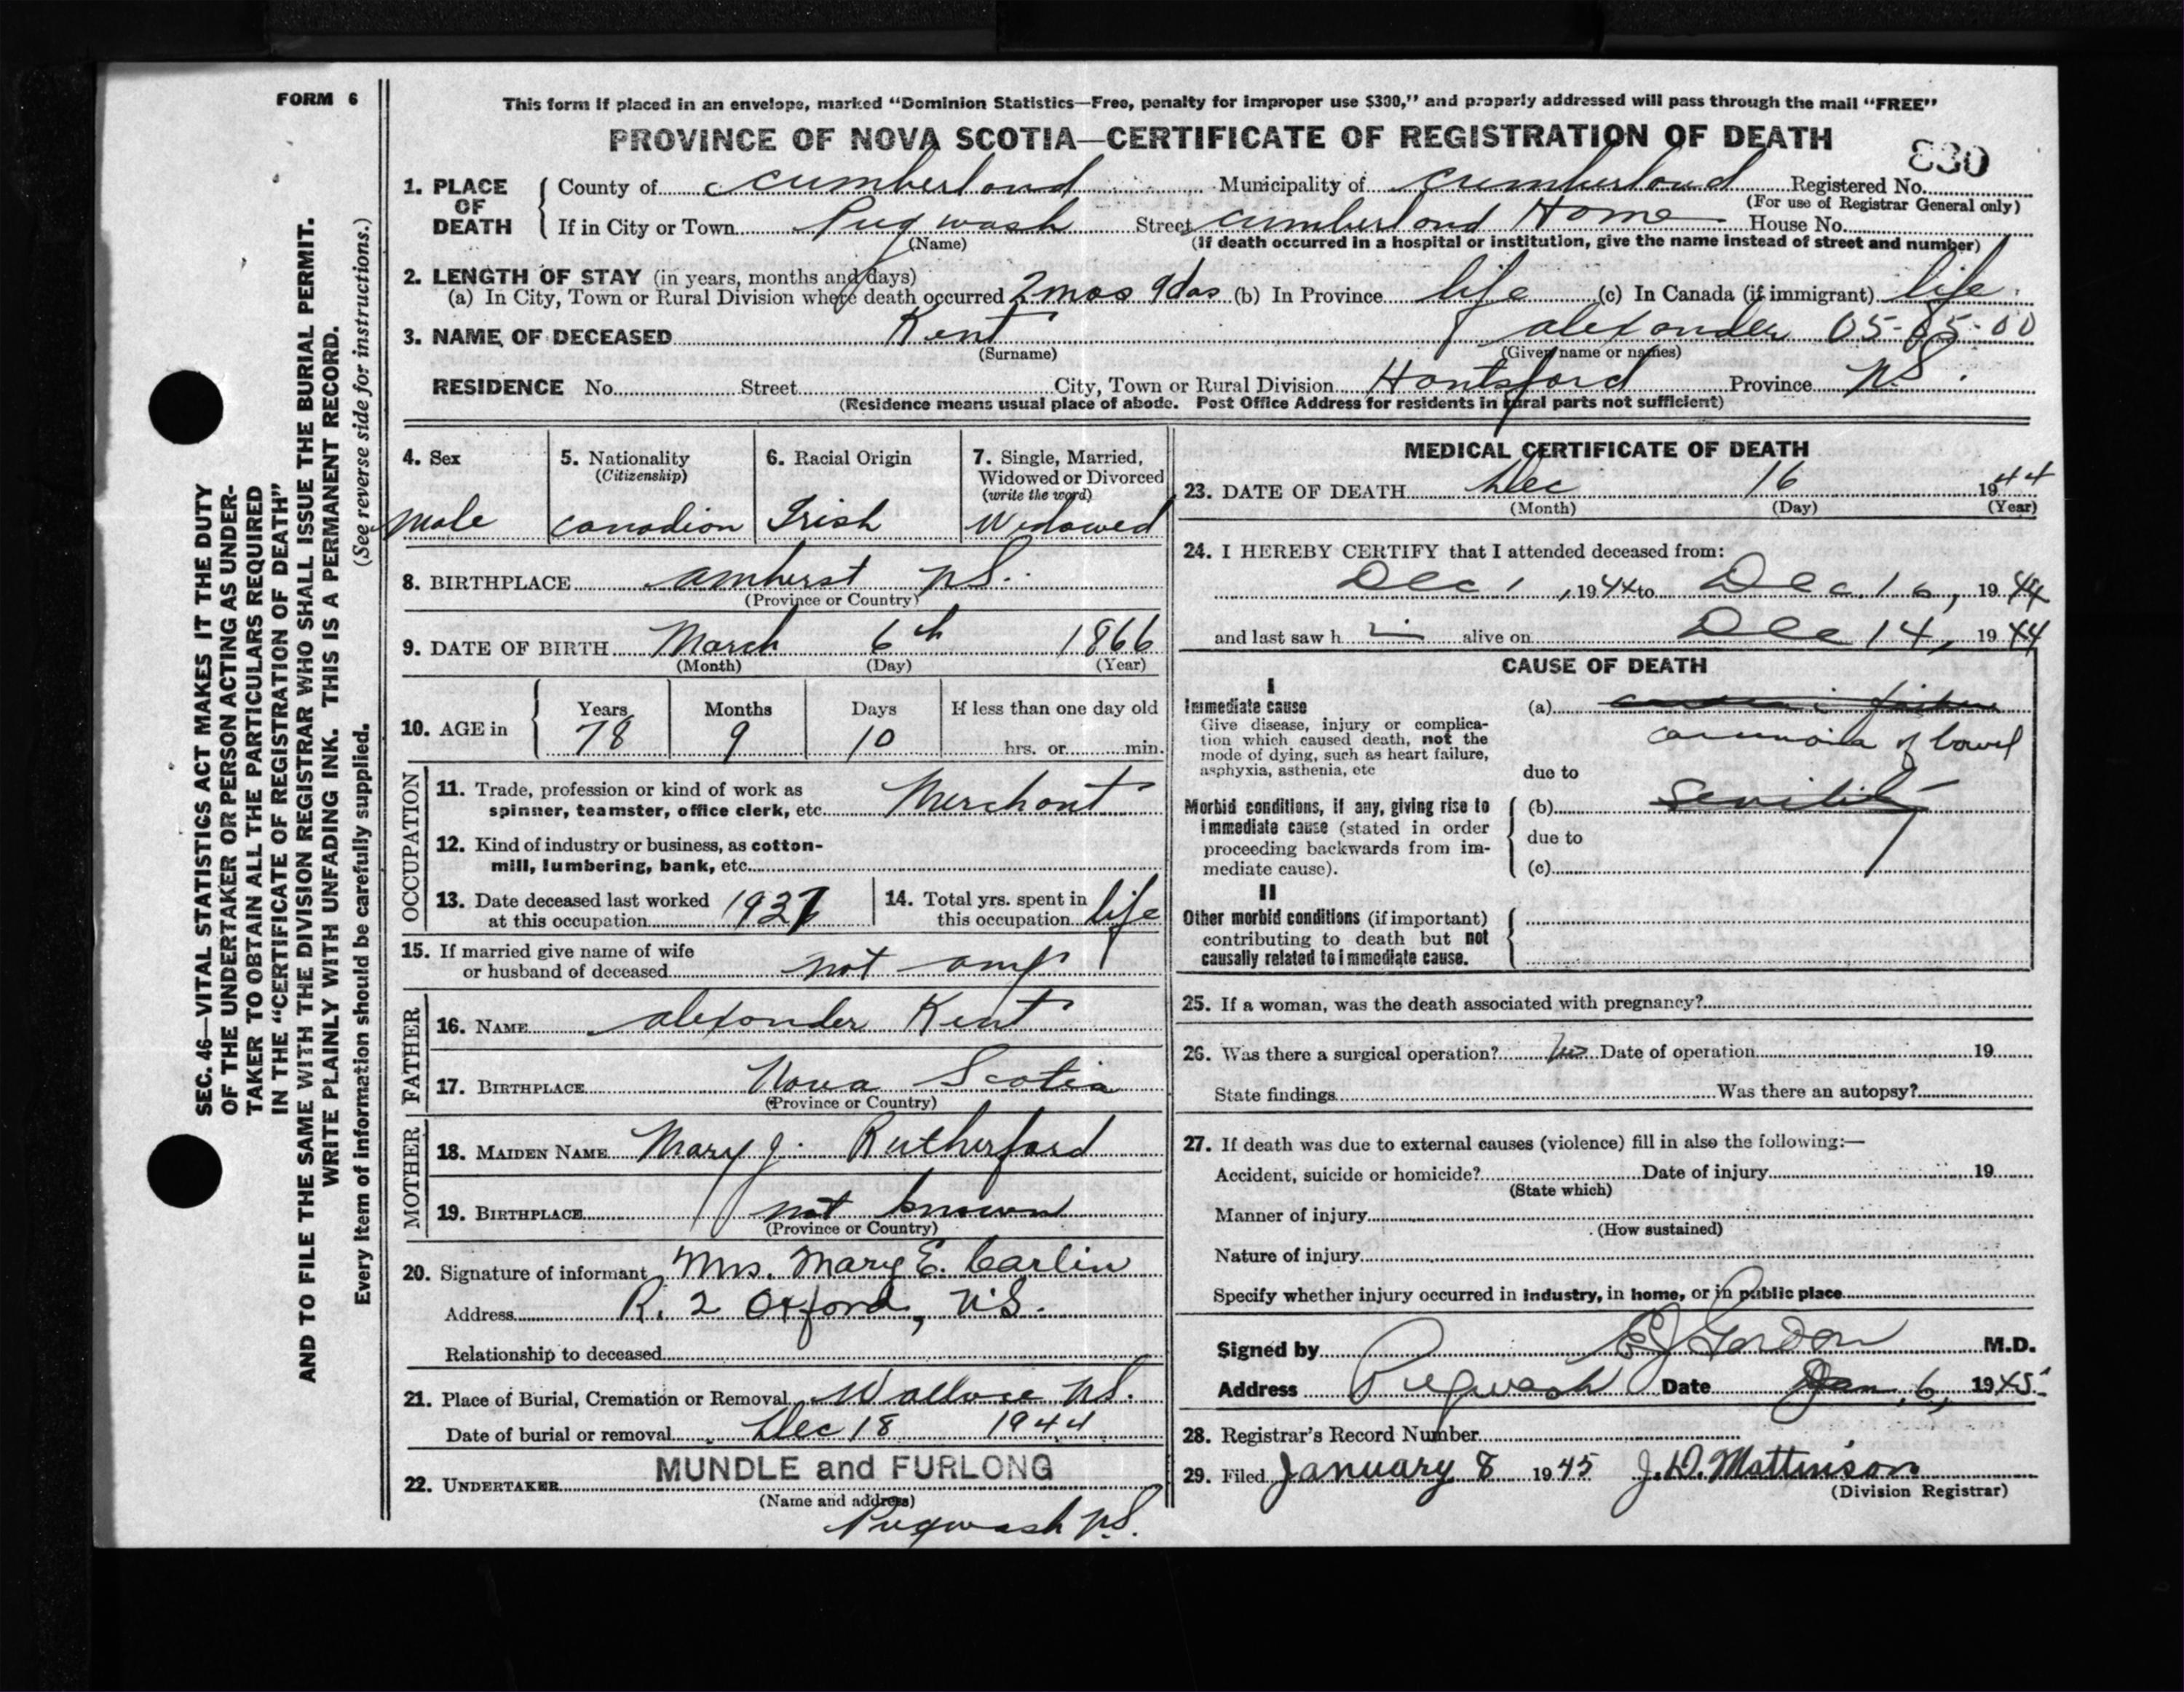 FORM 6
This form if placed in an envelope, marked "Dominion Statistics—Free, penalty for improper use $300," and properly addressed will pass through the mail "FREE"
PROVINCE OF NOVA SCOTIA—CERTIFICATE OF REGISTRATION OF DEATH
830
1. PLACE OF DEATH County of Cumberland Municipality of Cumberland Registered No.
(For use of Registrar General only)
If in City or Town Pugwash Street Cumberland Home House No.
(Name) (If death occurred in a hospital or institution, give the name instead of street and number)
2. LENGTH OF STAY (in years, months and days)
(a) In City, Town or Rural Division where death occurred 2 mos 9 das (b) In Province life (c) In Canada (if immigrant) life
3. NAME OF DECEASED Kent alexander 05-05-00
(Surname) (Given name or names)
RESIDENCE No. Street City, Town or Rural Division Hantsford Province N.S.
(Residence means usual place of abode. Post Office Address for residents in rural parts not sufficient)
4. Sex
male
5. Nationality
(Citizenship)
Canadian
6. Racial Origin
Irish
7. Single, Married,
Widowed or Divorced
(write the word)
Widowed
8. BIRTHPLACE amherst N.S.
(Province or Country)
9. DATE OF BIRTH March 6th 1866
(Month) (Day) (Year)
10. AGE in Years Months Days If less than one day old
78 9 10 hrs. or min.
OCCUPATION
11. Trade, profession or kind of work as
spinner, teamster, office clerk, etc. Merchant
12. Kind of industry or business, as cotton-
mill, lumbering, bank, etc.
13. Date deceased last worked
at this occupation 1937
14. Total yrs. spent in
this occupation life
15. If married give name of wife
or husband of deceased not
FATHER
16. NAME alexander Kent
17. BIRTHPLACE Nova Scotia
(Province or Country)
MOTHER
18. MAIDEN NAME Mary J. Rutherford
19. BIRTHPLACE not known
(Province or Country)
20. Signature of informant Mrs. Mary E. Carlin
Address R. 2 Oxford, N.S.
Relationship to deceased
21. Place of Burial, Cremation or Removal Wallace N.S.
Date of burial or removal Dec 18 1944
22. UNDERTAKER MUNDLE and FURLONG
(Name and address)
Pugwash N.S.
MEDICAL CERTIFICATE OF DEATH
23. DATE OF DEATH Dec 16 1944
(Month) (Day) (Year)
24. I HEREBY CERTIFY that I attended deceased from:
Dec 1, 1944 to Dec 16, 1944
and last saw h im alive on Dec 14, 1944
CAUSE OF DEATH
I
Immediate cause
Give disease, injury or complica-
tion which caused death, not the
mode of dying, such as heart failure,
asphyxia, asthenia, etc
(a) failure
carcinoma of bowel
due to
Morbid conditions, if any, giving rise to
immediate cause (stated in order
proceeding backwards from im-
mediate cause).
(b) Senility
due to
(c)
II
Other morbid conditions (if important)
contributing to death but not
causally related to immediate cause.
25. If a woman, was the death associated with pregnancy?
26. Was there a surgical operation? no Date of operation 19
State findings Was there an autopsy?
27. If death was due to external causes (violence) fill in also the following:—
Accident, suicide or homicide? Date of injury 19
(State which)
Manner of injury
(How sustained)
Nature of injury
Specify whether injury occurred in industry, in home, or in public place
Signed by E J Gordon M.D.
Address Pugwash Date Jan. 6, 1945
28. Registrar's Record Number
29. Filed January 8 1945 J. D. Mattinson
(Division Registrar)
SEC. 46—VITAL STATISTICS ACT MAKES IT THE DUTY
OF THE UNDERTAKER OR PERSON ACTING AS UNDER-
TAKER TO OBTAIN ALL THE PARTICULARS REQUIRED
IN THE "CERTIFICATE OF REGISTRATION OF DEATH"
AND TO FILE THE SAME WITH THE DIVISION REGISTRAR WHO SHALL ISSUE THE BURIAL PERMIT.
WRITE PLAINLY WITH UNFADING INK. THIS IS A PERMANENT RECORD.
Every item of information should be carefully supplied. (See reverse side for instructions.)